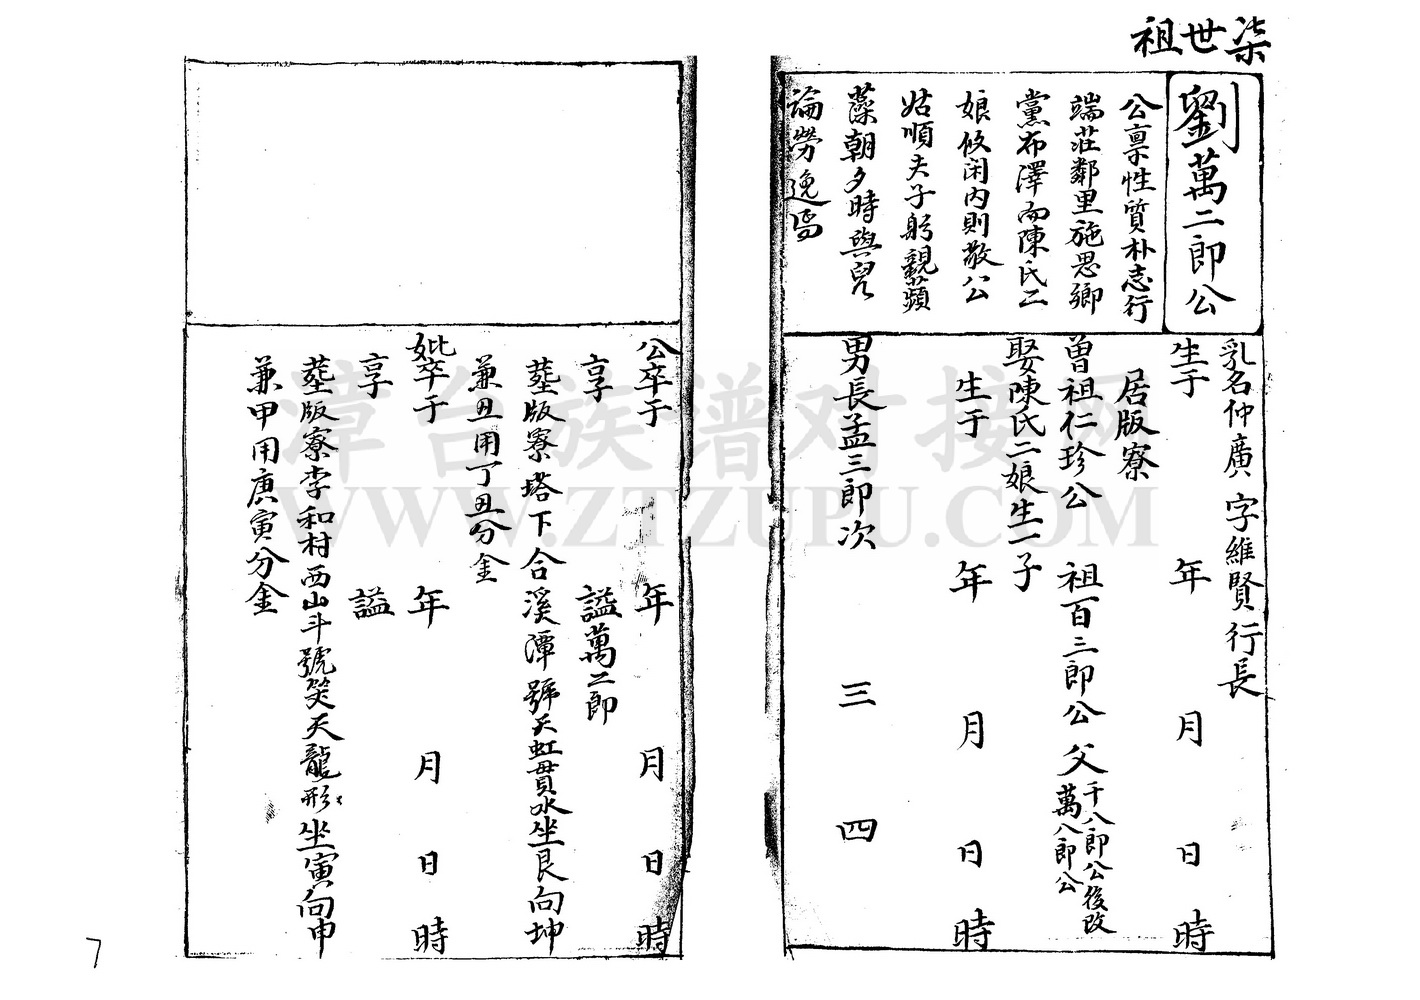 柒世祖
劉萬二郎公
公禀性質朴志行
端莊鄰里施恩鄉
黨布澤而陳氏二
娘攸闲內則敬公
姑順夫子躬親蘋
藻朝夕時與兒
論勞逸焉
乳名仲廣 字維賢 行長
生于 年 月 日 時
居版寮
曾祖仁珍公 祖百三郎公 父千八郎公後改
萬八郎公
娶陳氏二娘生一子
生于 年 月 日 時
男長孟三郎次 三 四
公卒于 年 月 日 時
享 謚萬二郎
塟版寮塔下合溪潭號天虹貫水坐艮向坤
兼丑用丁丑分金
妣卒于 年 月 日 時
享 謚
塟版寮李和村西山斗號笑天龍形坐寅向申
兼甲用庚寅分金
7
潭台族谱对接网
WWW.ZTZUPU.COM